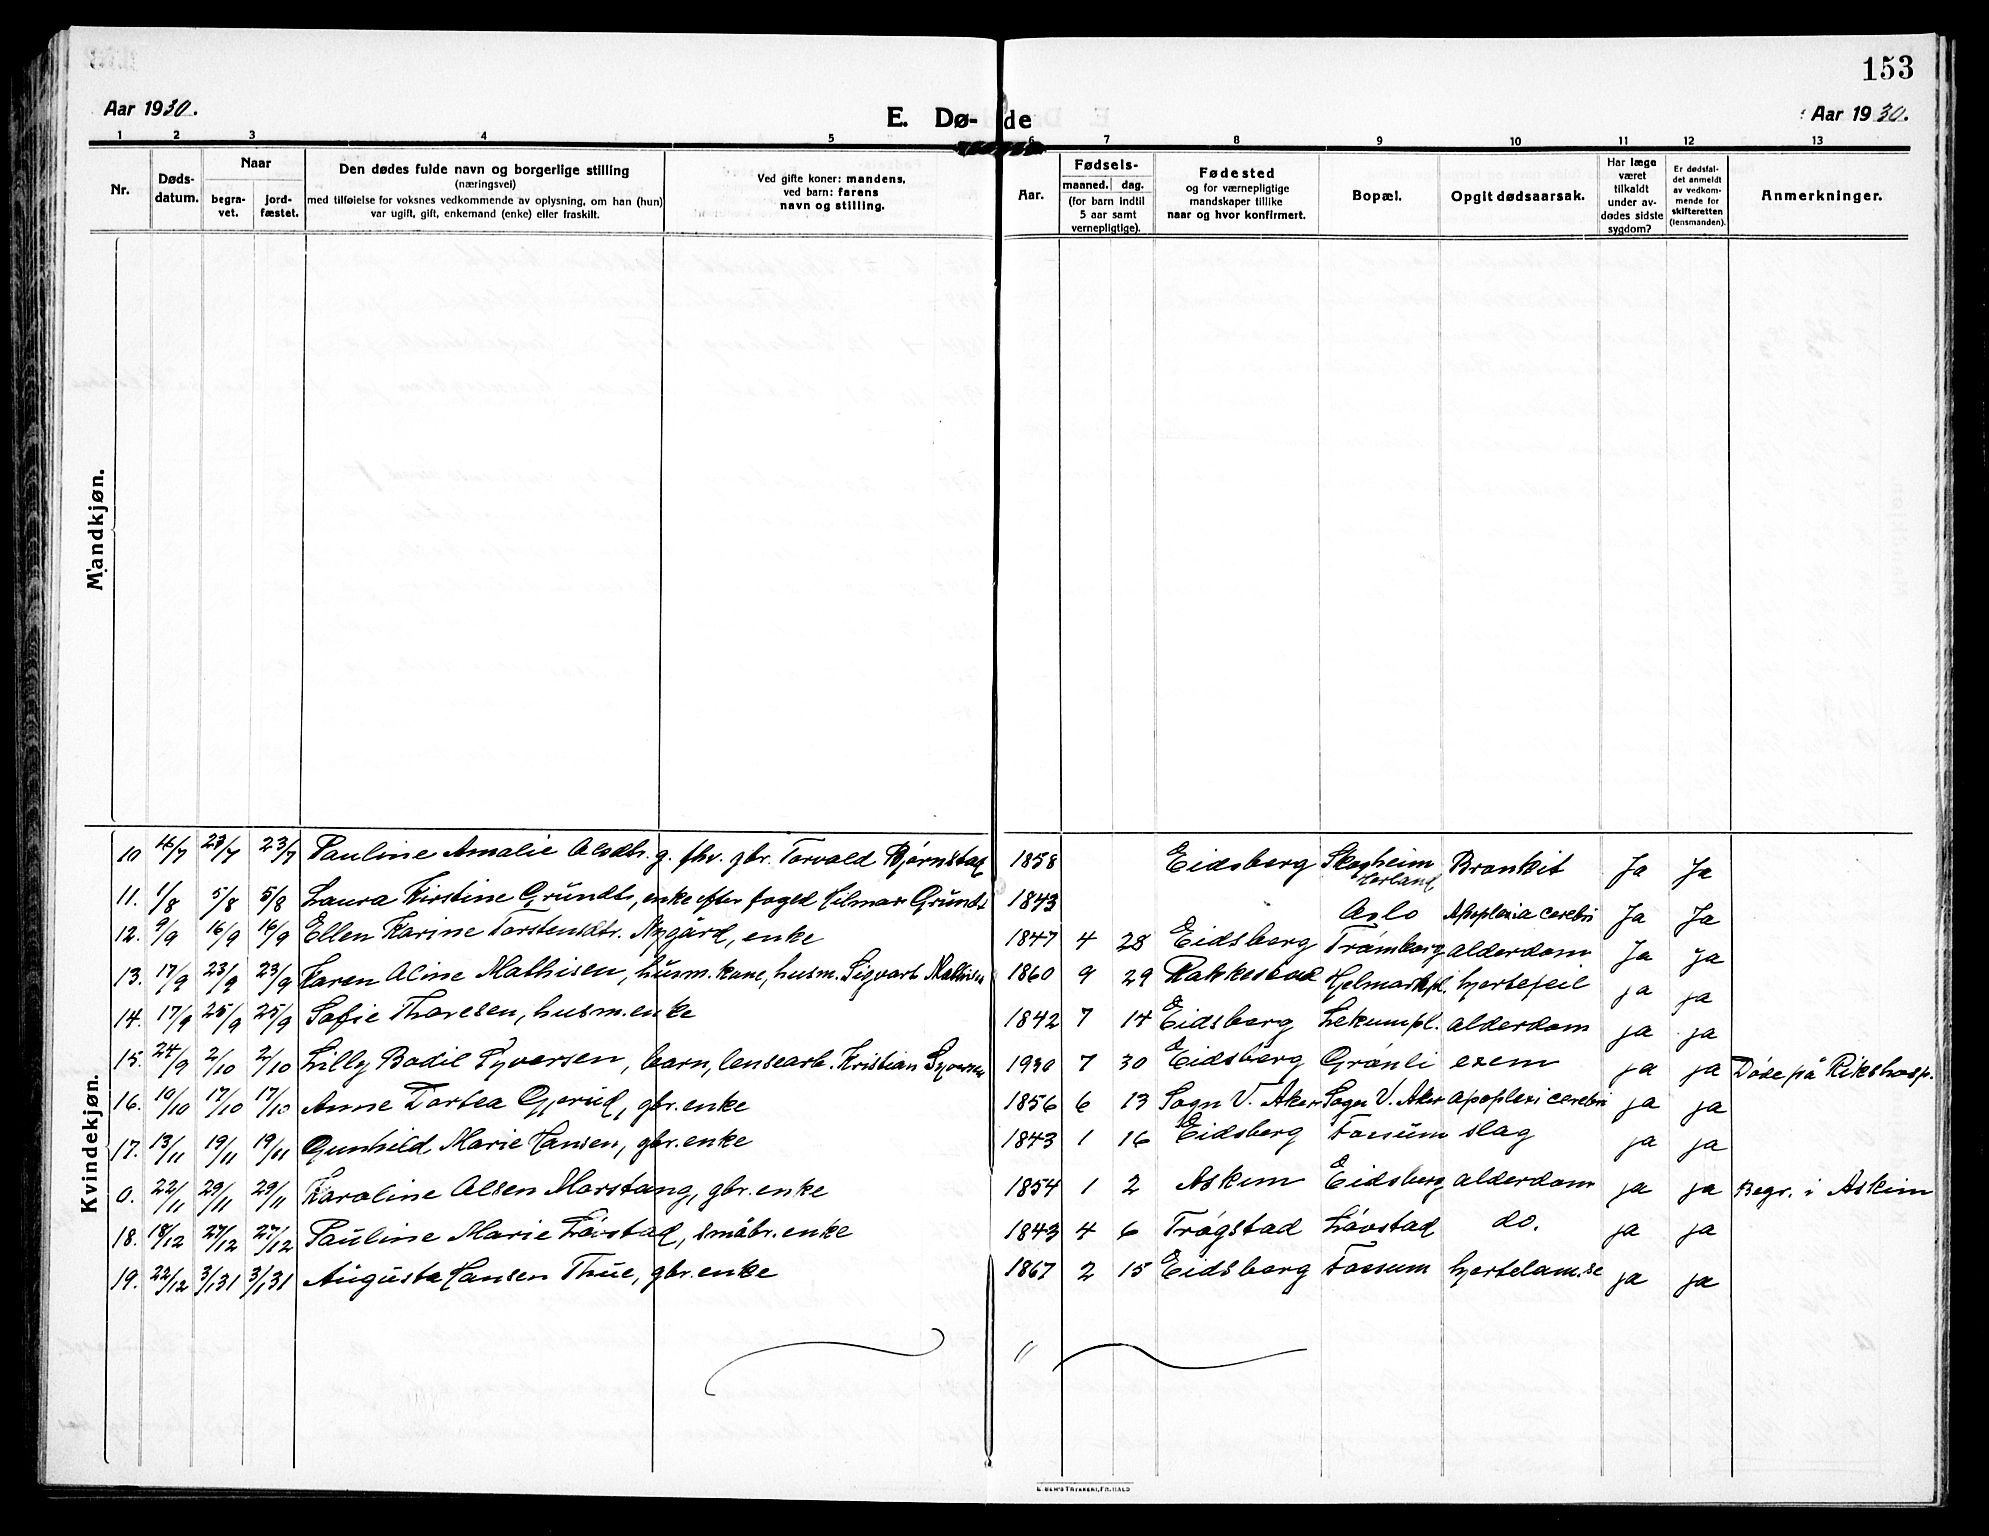 153
Aar 1930. E. Dø- de Aar 1930.
1 2 3 4 5 6 7 8 9 10 11 12 13
Nr. Døds-datum. Naar begra-vet. jord-fæstet. Den dødes fulde navn og borgerlige stilling (næringsvei) med tilføielse for voksnes vedkommende av oplysning, om han (hun) var ugift, gift, enkemand (enke) eller fraskilt. Ved gifte koner: mandens, ved barn: farens navn og stilling. Aar. Fødsels- maaned. dag. (for barn indtil 5 aar samt vernepligtige). Fødested og for værnepligtige mandskaper tillike naar og hvor konfirmert. Bopæl. Opgit dødsaarsak. Har læge været tilkaldt under av-dødes sidste sygdom? Er dødsfal-det anmeldt av vedkom-mende for skifteretten (lensmanden). Anmerkninger.
Mandkjøn.
Kvindekjøn.
10 23/7 23/7 Pauline Amalie Olsdtr. g. fhv. gbr. Torvald Bjørnstad 1858 Eidsberg Skogheim Bronkit Ja Ja
11. 1/8 5/8 5/8 Laura Kirstine Grundt, enke efter foged Hilmar Grundt 1843 Oslo Apoplexia cerebri Ja Ja
12. 9/9 16/9 16/9 Ellen Karine Torstensdtr. enke 1847 4 28 Eidsberg Trømborg alderdom Ja Ja
13. 17/9 23/9 23/9 Karen Oline Mathisen, husm. kone, husm. Sigvart Mathisen 1860 9 29 Rakkestad Hjelmarkpl. hjertefeil ja ja
14. 17/9 25/9 25/9 Sofie Thoresen, husm. enke 1842 7 14 Eidsberg Lekumpl. alderdom ja ja
15. 24/9 2/10 2/10 Lilly Bodil Syversen, barn, lensearb. Kristian Syversen 1930 7 30 Eidsberg Grønli exem ja ja Døde på Rikshosp.
16. 10/10 17/10 17/10 Anne Dortea Gjerud, gbr. enke 1856 6 13 Sogn V. Aker Sogn V. Aker apoplexi cerebri ja ja
17. 13/11 19/11 19/11 Gunhild Marie Hansen, gbr. enke 1843 1 16 Eidsberg Fossum slag ja ja
0. 22/11 29/11 29/11 Karoline Olsen Morstang, gbr. enke 1854 1 2 Askim Eidsberg alderdom ja ja Begr. i Askim
18. 18/12 27/12 27/12 Pauline Marie Løvstad, småbr. enke 1843 4 6 Trøgstad Løvstad do. ja ja
19. 22/12 3/1 31 3/1 31 Augusta Hansen Thue, gbr. enke 1867 2 15 Eidsberg Fossum hjertelam.se ja ja